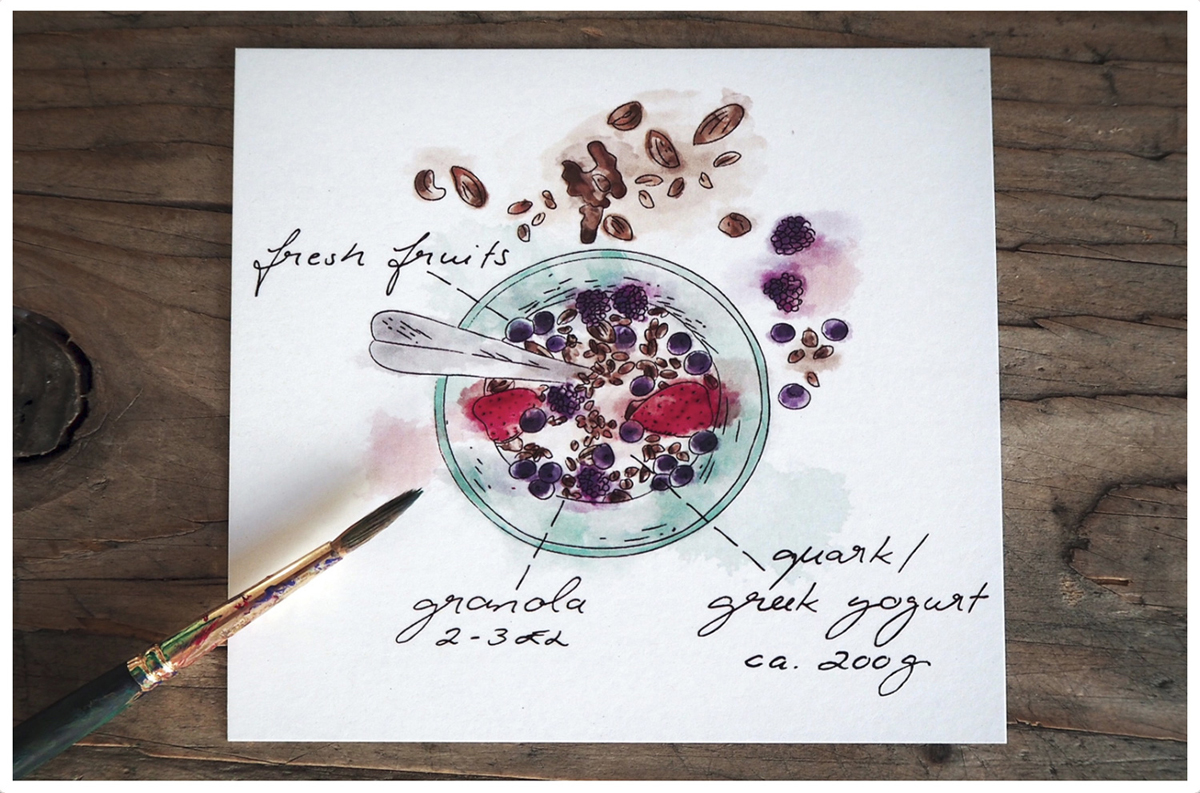 fresh fruits
granola
2-3 EL
quark/
greek yogurt
ca. 200g